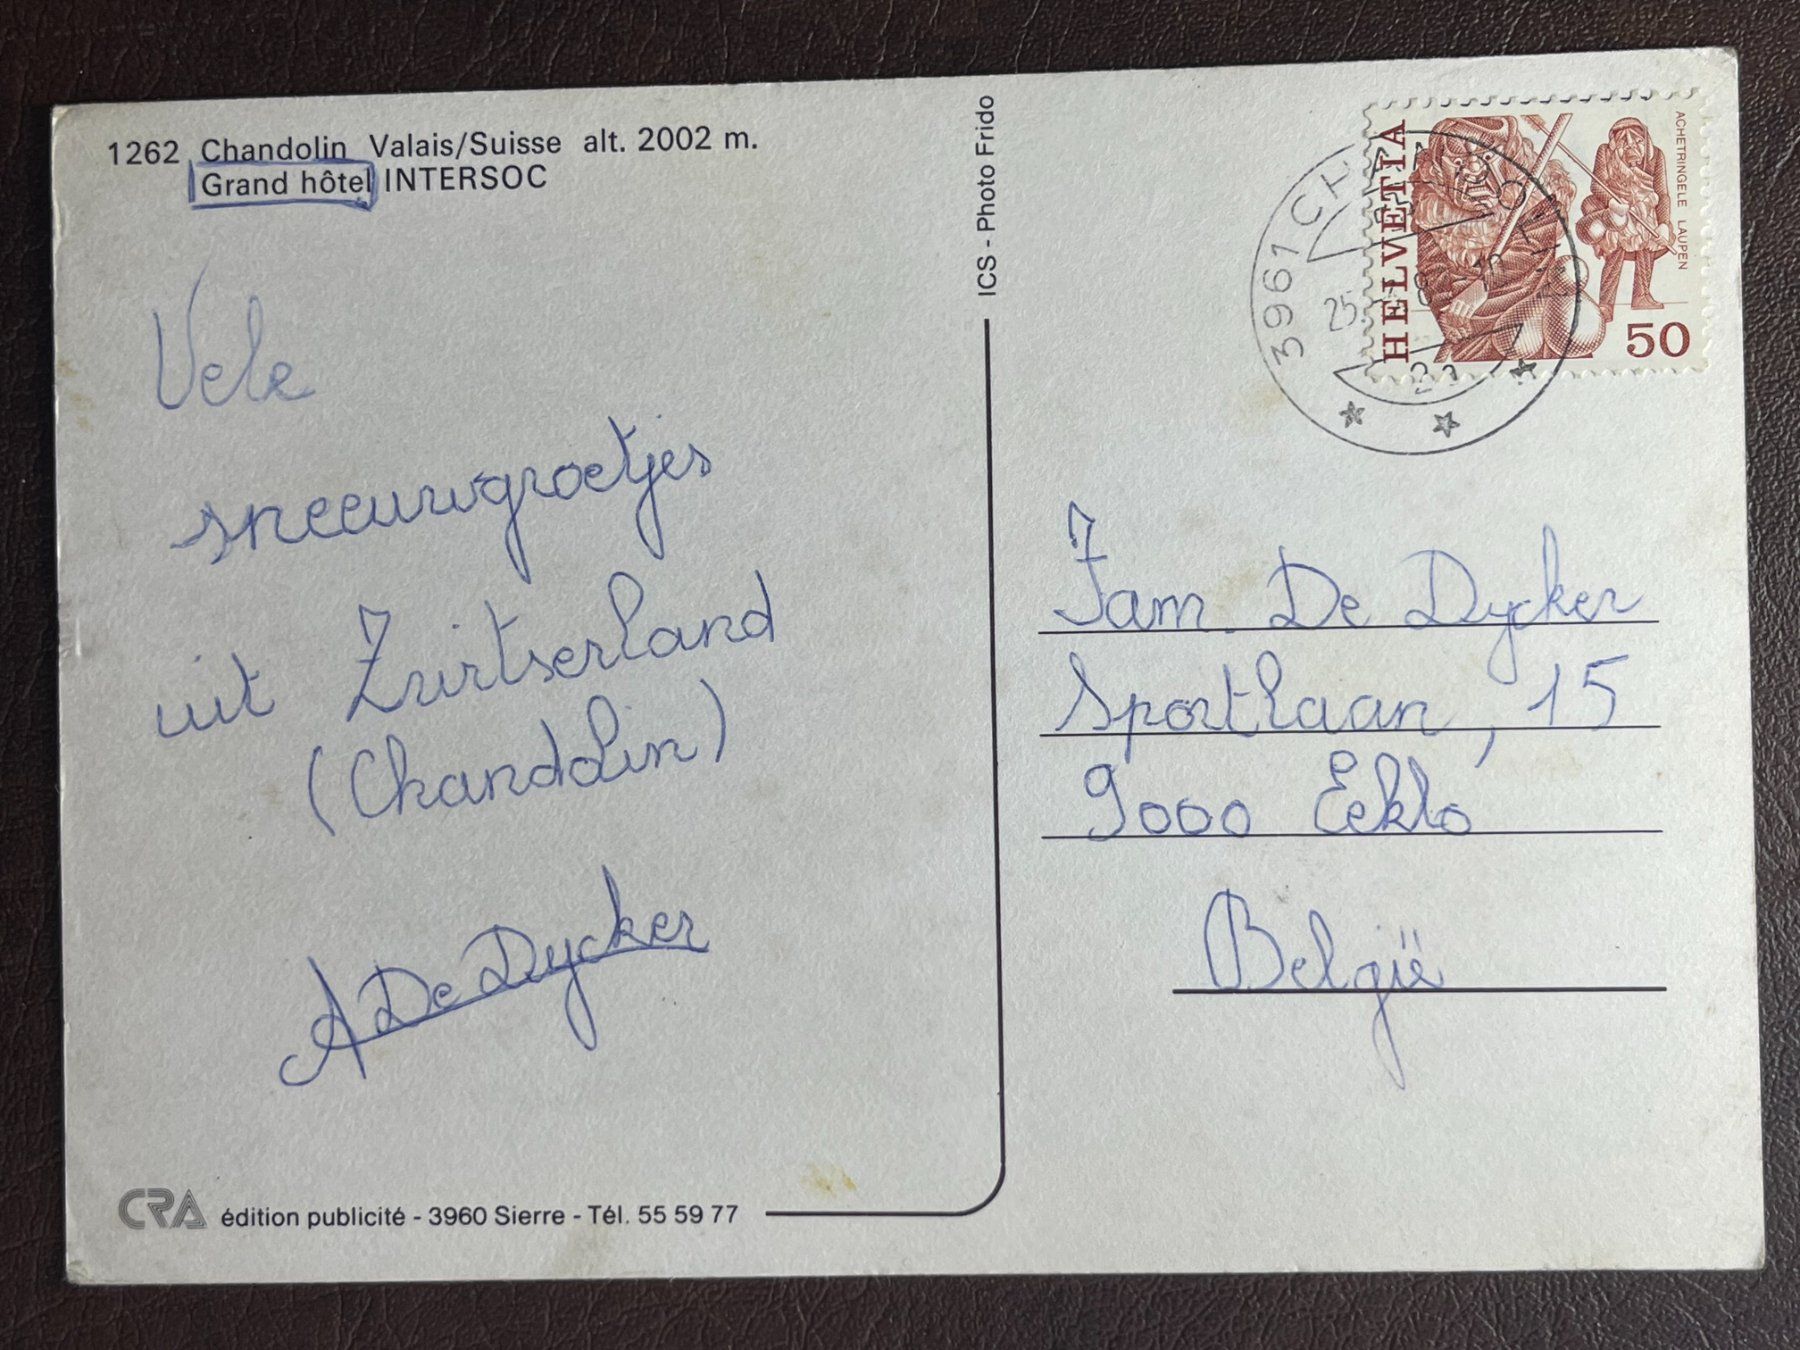 1262 Chandolin Valais/Suisse alt. 2002 m.
Grand hôtel INTERSOC
Vele
sneeuwgroetjes
uit Zwitserland
(Chandolin)
A De Dycker
CRA édition publicité - 3960 Sierre - Tél. 55 59 77
ICS - Photo Frido
HELVETIA
ACHETRINGELE LAUPEN
50
3961
25.
Fam. De Dycker
Sportlaan, 15
9000 Eeklo
België